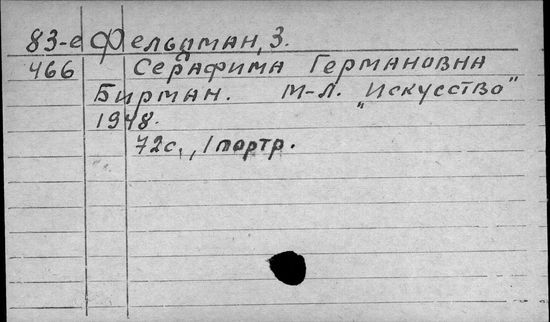 83-е Фельдман, З.
466 Серафима Германовна
Бирман. М-Л. "Искусство"
1948.
72с., 1 портр.